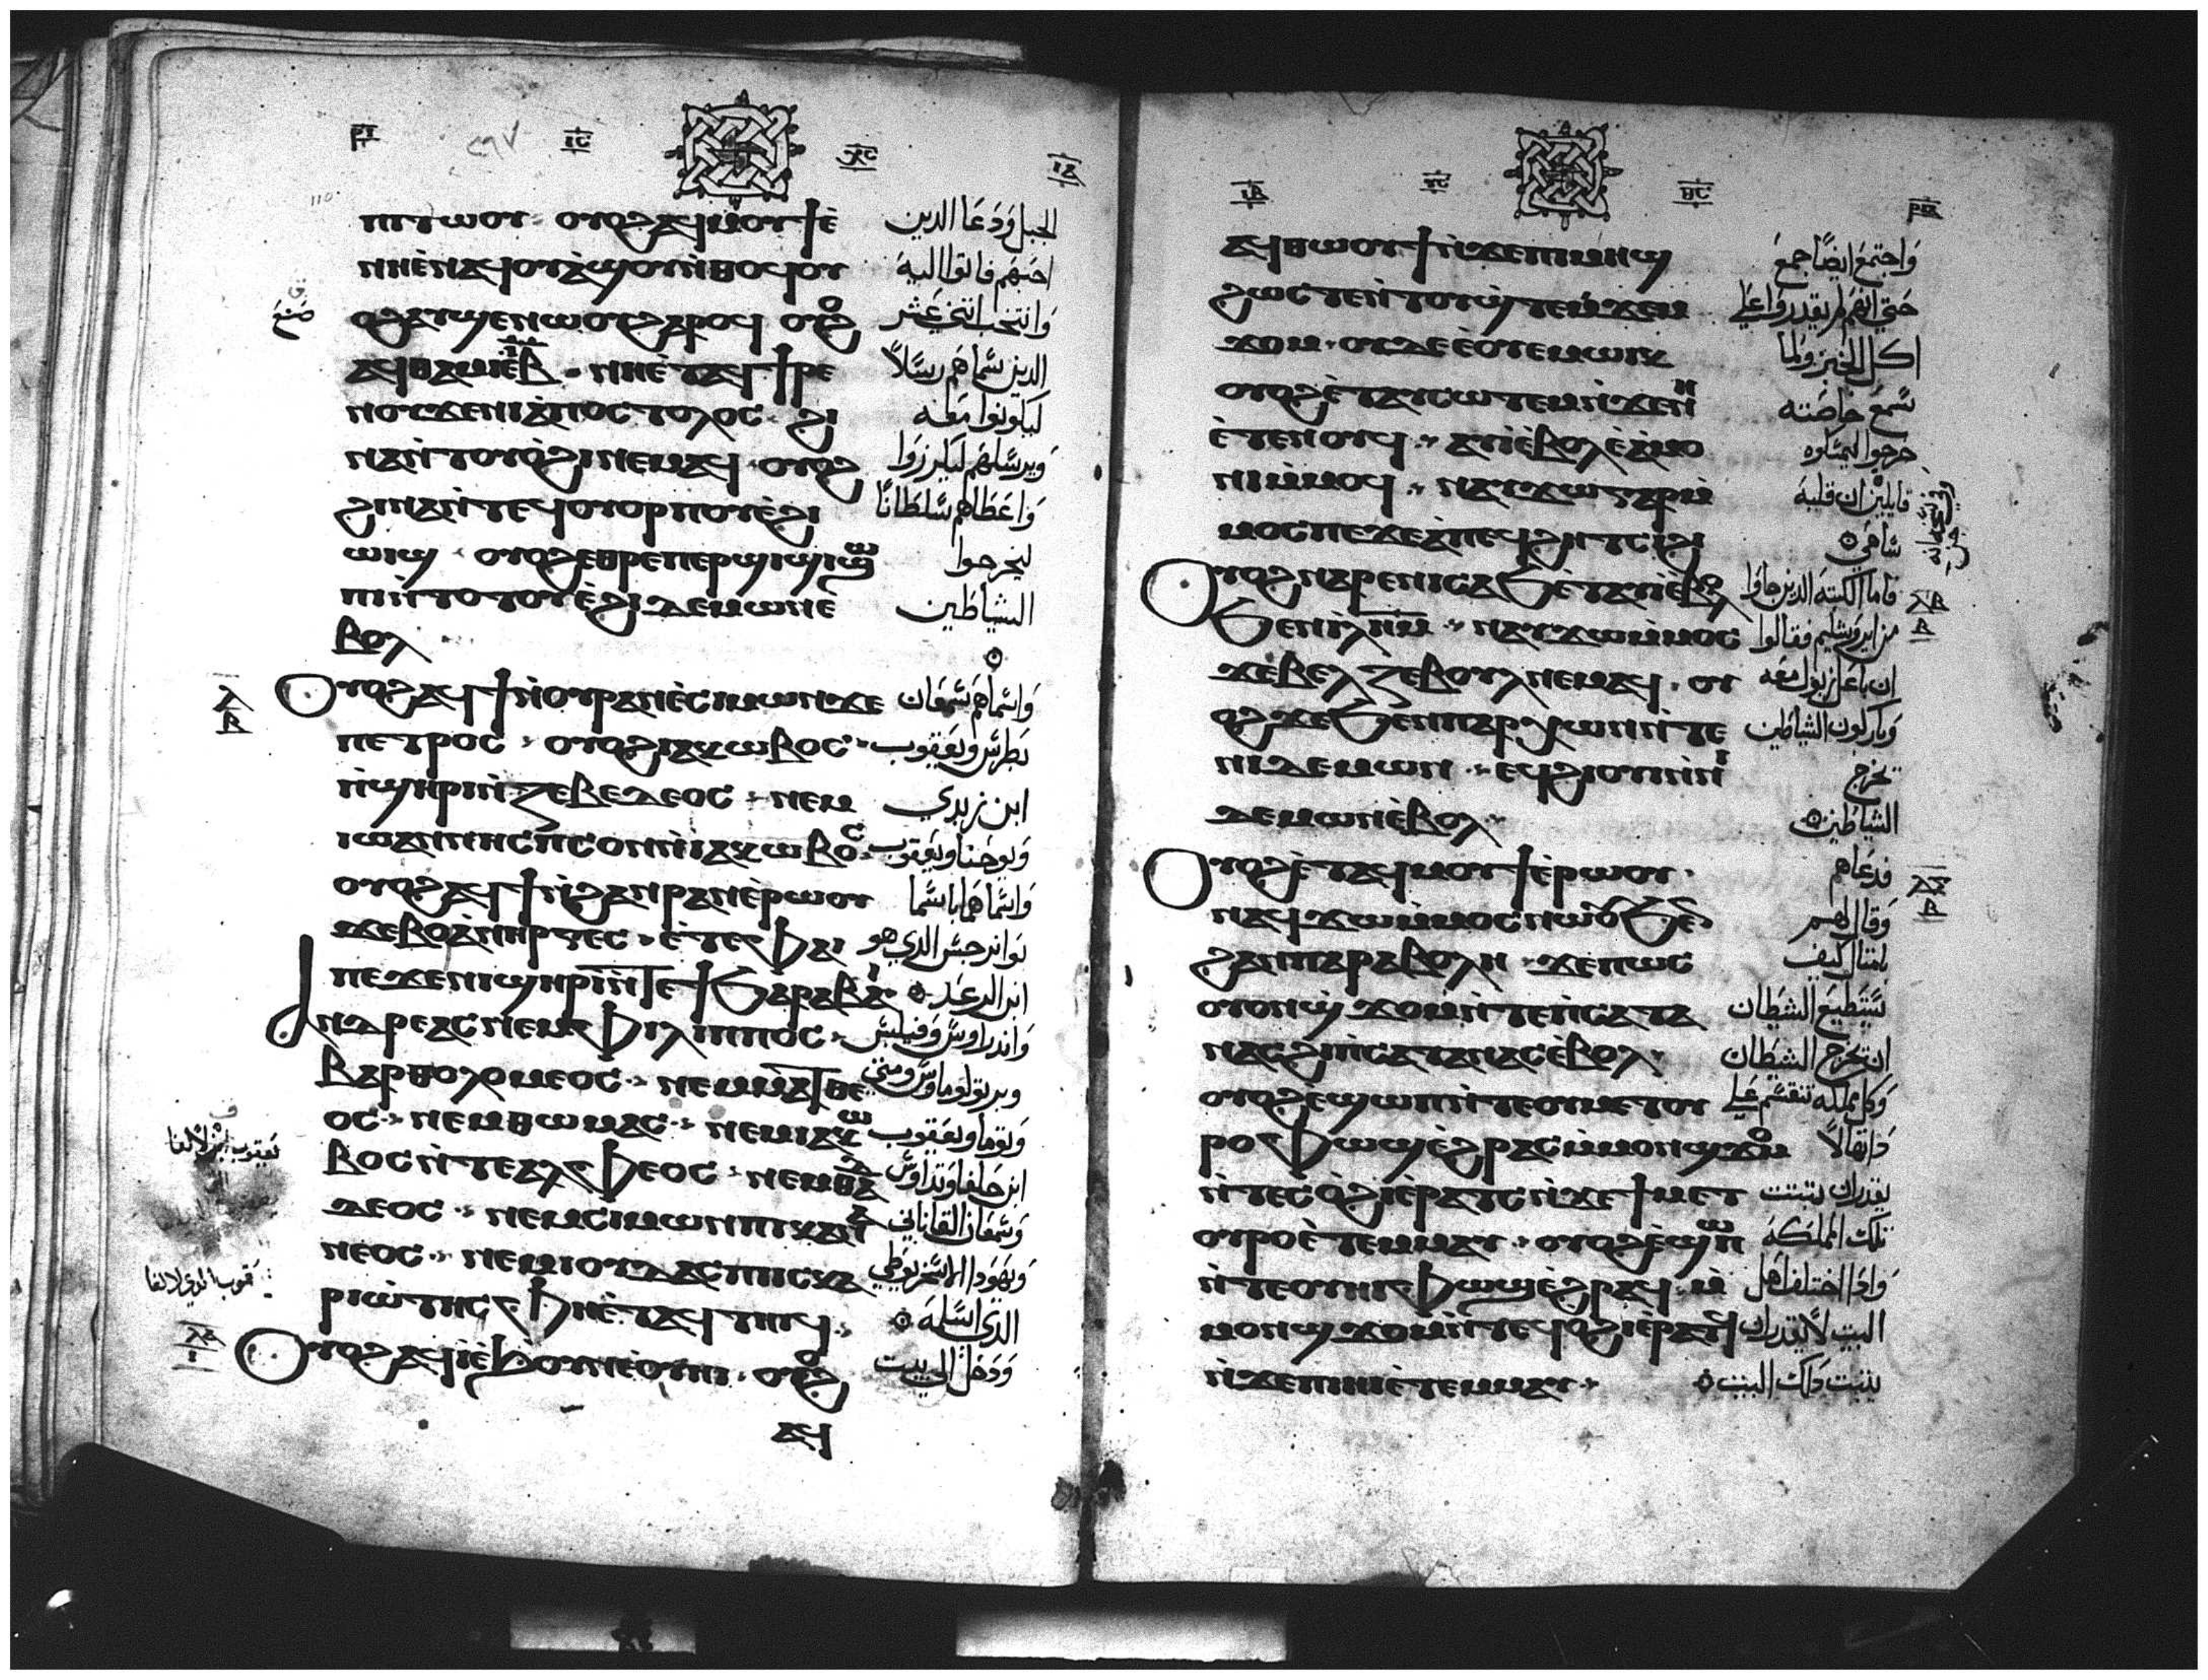 ⲡⲓⲧⲱⲟⲩ ⲟⲩⲟϩ ⲁϥⲙⲟⲩϯ ⲉ̀ الجبل وَدَعَا الدين
ⲛⲏⲉ̀ⲛⲁϥⲟⲩⲁ̀ϣⲟⲩ ⲛ̀ⲑⲟϥ ⲟⲩ احبَهم فاتوا اليهَ
ⲟϩ ⲁⲩϣⲉⲛⲱⲟⲩ ϩⲁⲣⲟϥ ⲟⲩⲟϩ وَانتخب اتنى عَشر
ⲁϥⲑⲁⲙⲓⲉ̀ ⲓⲃ ⲛⲏⲉ̀ⲧⲁϥϯⲣⲉ الدين سَّماهم رسَلاً
ⲛⲟⲩ ϫⲉⲛⲓⲁ̀ⲡⲟⲥⲧⲟⲗⲟⲥ ϩⲓ ليكونوا معَه
ⲛⲁⲛ̀ⲧⲟⲩⲟ̀ϩⲓ ⲛⲉⲙⲁϥ ⲟⲩⲟϩ وَيرسَّلهم ليكرزوَا
ϩⲓⲛⲁⲛ̀ⲧⲉϥⲟⲩⲟⲣⲡⲟⲩ ⲉ̀ϩⲓ وَاعَطاهم سَّلطانًا
ⲱⲓϣ ⲟⲩⲟϩ ⲉⲑⲣⲉⲡⲉⲣϣⲓϣⲓ ϣⲱ ليخرجوا
ⲡⲓ ⲛ̀ⲧⲟⲧⲟⲩ ⲉ̀ϩⲓ ⲇⲉⲙⲱⲛ ⲉ̀ الشياطين
ⲃⲟⲗ
ⲟⲩⲟϩ ⲁϥϯ ⲛ̀ⲟⲩⲣⲁⲛ ⲉ̀ⲥⲓⲙⲱⲛ ϫⲉ وَاسَّماهم سَّمعَان
ⲡⲉⲧⲣⲟⲥ ⲟⲩⲟϩ ⲓⲁⲕⲱⲃⲟⲥ بَطرسَّ وَيعَقوب
ⲛ̀ϣⲏⲣⲓ ⲛ̀ⲍⲉⲃⲉⲇⲉⲟⲥ ⲛⲉⲙ ابن زبدي
ⲓⲱⲁⲛⲛⲏⲥ ⲡ̀ⲥⲟⲛ ⲛ̀ⲓⲁⲕⲱⲃⲟⲥ وَيوحَنا وَيعَقوب
ⲟⲩⲟϩ ⲁϥϯ ⲛ̀ϩⲁⲛⲣⲁⲛ ⲉ̀ⲣⲱⲟⲩ وَاسَّماهما باسَّما
ϫⲉ ⲃⲟⲁ̀ⲛⲏⲣⲅⲉⲥ ⲉ̀ⲧⲉ ⲫⲁⲓ بَوانرجسَّ الدي هو
ⲡⲉ ϫⲉⲛⲓϣⲏⲣⲓ ⲛ̀ⲧⲉ ϯϧⲁⲣⲁⲃⲁⲓ ابن الرعَد
ⲁⲛⲇⲣⲉⲁⲥ ⲛⲉⲙ ⲫⲓⲗⲓⲡⲡⲟⲥ وَاندراوسَّ وَفيلبسَّ
ⲃⲁⲣⲑⲟⲗⲟⲙⲉⲟⲥ ⲛⲉⲙ ⲙⲁⲧⲑⲉ وبرتولوماوسَّ ومتى
ⲟⲥ ⲛⲉⲙ ⲑⲱⲙⲁⲥ ⲛⲉⲙ ⲓⲁⲕⲱ وَتوما وَيعَقوب
ⲃⲟⲥ ⲛ̀ⲧⲉ ⲁⲗⲫⲉⲟⲥ ⲛⲉⲙ ⲑⲁⲇ ابن حَلفا وَتداوسَّ
ⲇⲉⲟⲥ ⲛⲉⲙ ⲥⲓⲙⲱⲛ ⲡⲓⲕⲁⲛⲁ وَسَّمعَان القاناني
ⲛⲉⲟⲥ ⲛⲉⲙ ⲓⲟⲩⲇⲁⲥ ⲡⲓⲥⲕⲁ وَيهَودا الاسَّخريوطي
ⲣⲓⲱ̀ⲧⲏⲥ ⲫⲏⲉ̀ⲧⲁϥⲧⲏⲓϥ الذي اسَّلمهَ
ⲟⲩⲟϩ ⲁϥⲓ̀ ⲉ̀ϧⲟⲩⲛ ⲉ̀ⲟⲩⲏⲓ ⲟⲩⲟϩ وَدَخل الى بيت
ⲁϥ
ⲁϥⲑⲱⲟⲩϯ ⲛ̀ϫⲉ ⲡⲓⲙⲏϣ وَاجتمعَ ايضًا جمعَ
ϩⲱⲥⲧⲉ ⲛ̀ⲧⲟⲩϣ̀ⲧⲉⲙϫⲉⲙ حَتى انهَم لم يقدروَا عَلى
ϫⲟⲙ ⲟⲩⲇⲉ ⲉ̀ⲟⲩⲉⲙ ⲱⲓⲕ اكل الخبز وَلما
ⲟⲩⲟϩ ⲉ̀ⲧⲁⲩⲥⲱⲧⲉⲙ ⲛ̀ϫⲉ ⲛⲏ سَّمعَ خاصَته
ⲉ̀ⲧⲉⲛⲟⲩϥ ⲁⲩⲓ̀ ⲉ̀ⲃⲟⲗ ⲉ̀ⲁ̀ⲙⲟ خرجوا ليمسَّكوه
ⲛⲓ ⲙ̀ⲙⲟϥ ⲛⲁⲩϫⲱ ⲅⲁⲣ ⲙ̀ قايلين ان قلبهَ
ⲙⲟⲥ ⲡⲉ ϫⲉ ⲁ̀ⲡⲉϥϩⲏⲧ ⲥⲓϩⲓ سَّاهي
ⲟⲩⲟϩ ⲛⲁⲣⲉ ⲛⲓⲥⲁϧ ⲉ̀ⲧⲁⲩⲓ̀ ⲉ̀ⲃⲟⲗ فاما الكتبهَ الدين جاوَا
ϧⲉⲛ ⲓ̀ⲗⲏⲙ ⲛⲁⲩϫⲱ ⲙ̀ⲙⲟⲥ من ايروَشليم فقالوا
ϫⲉ ⲃⲉⲗⲍⲉⲃⲟⲩⲗ ⲛⲉⲙⲁϥ ⲟⲩ ان باعَل زبول معَه
ⲟϩ ϫⲉ ϧⲉⲛ ⲡⲁⲣⲭⲱⲛ ⲛ̀ⲧⲉ وَباركون الشياطين
ⲛⲓⲇⲉⲙⲱⲛ ⲉϥϩⲓⲟⲩⲓ̀ ⲛ̀ⲛⲓ يخرج
ⲇⲉⲙⲱⲛ ⲉ̀ⲃⲟⲗ الشياطين
ⲟⲩⲟϩ ⲉ̀ⲧⲁϥⲙⲟⲩϯ ⲉ̀ⲣⲱⲟⲩ فدعَاهم
ⲛⲁϥϫⲱ ⲙ̀ⲙⲟⲥ ⲛⲱⲟⲩ ϧⲉⲛ وَقال لهَم
ϩⲁⲛⲡⲁⲣⲁⲃⲟⲗⲏ ϫⲉ ⲡⲱⲥ بامتال كيف
ⲟⲩⲟⲛ ϣ̀ϫⲟⲙ ⲛ̀ⲧⲉ ⲛ̀ⲥⲁⲧⲁ يسَّتطيعَ الشيطان
ⲛⲁⲥ ϩⲓ ⲡ̀ⲥⲁⲧⲁⲛⲁⲥ ⲉ̀ⲃⲟⲗ ان يخرج الشيَطان
ⲟⲩⲟϩ ⲉ̀ϣⲱⲡ ⲛ̀ⲧⲉ ⲟⲩⲙⲉⲧⲟⲩ وَكل مملكه تنقسَّم عَلى
ⲣⲟ ⲫⲱϣ ⲉ̀ϩⲣⲁⲥ ⲙ̀ⲙⲟⲛ ϣϫⲟⲙ دَاتهَا لاَ
ⲛ̀ⲧⲉⲥⲟ̀ϩⲓ ⲉ̀ⲣⲁⲧⲥ ⲛ̀ϫⲉ ϯⲙⲉⲧ يقدر ان يتبتت
ⲟⲩⲣⲟ ⲉ̀ⲧⲉⲙⲙⲁⲩ ⲟⲩⲟϩ ⲉ̀ϣⲱⲡ تلك المملكهَ
ⲛ̀ⲧⲉ ⲟⲩⲏⲓ ⲫⲱϣ ⲉ̀ϩⲣⲁϥ ⲙ̀ وَادَا اختلف اهَل
ⲙⲟⲛ ϣϫⲟⲙ ⲛ̀ⲧⲉϥⲟ̀ϩⲓ ⲉ̀ⲣⲁⲧϥ البيت لاَ يقدر ان
ⲛ̀ϫⲉ ⲡⲓⲏⲓ ⲉ̀ⲧⲉⲙⲙⲁⲩ يتبت دَلك البيت